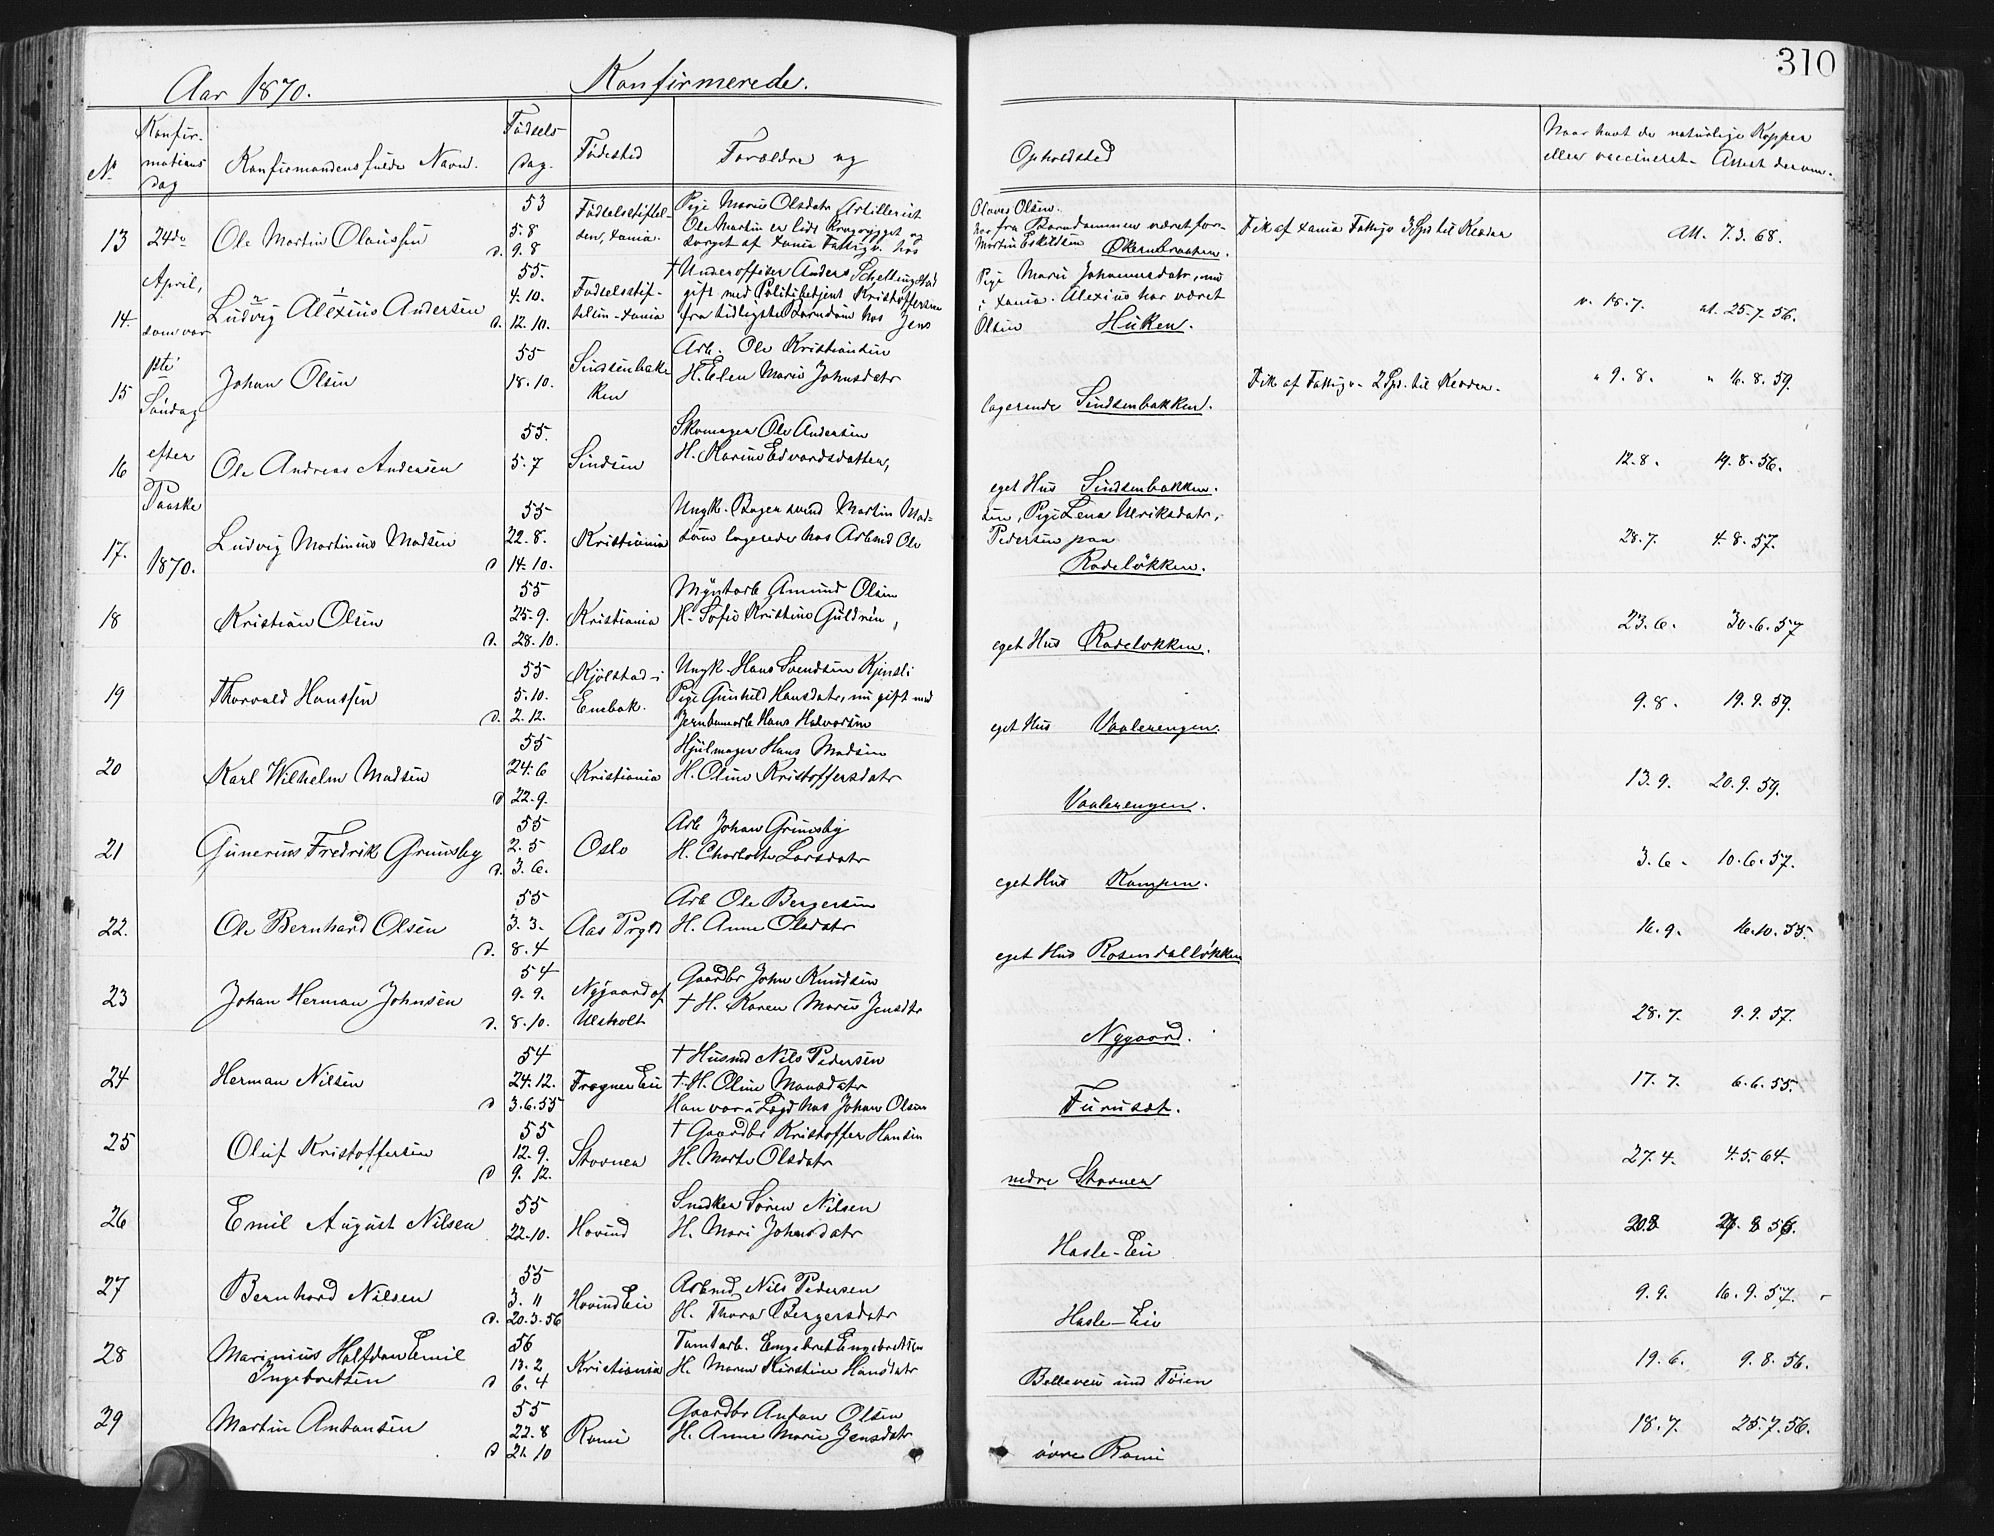 310
Aar 1870. Konfirmerede.
No Konfirmations Dag Konfirmandens fulde Navn. Fødsels Dag. Fødested Forældre og Opholdsted Naar havt de naturlige Kopper eller vaccineret. Attest derom.
24de April, som var 1ste Søndag efter Paaske 1870.
13 Ole Martin Olaussen 53 5.8 d. 9.8 Fødselsstiftelsen, Xania.
Pige Marie Olsdatr Artillerist Olaves Olsen.
Ole Martin er lidt
fra Barndommen været for-
sørget af Xania Fattigv. hos Martin Eskildsen Økernbraaten.
Fik af Xania Fattigv. 3 Spd til Klæder Att. 7.3.68.
14. Ludvig Alexius Andersen 55. 4.10. d. 12.10. Fødselsstiftelsen Xania
† Underoffiser Anders
Pige Marie Johannesdatr, nu
gift med Politibetjent Kristoffersen i Xania. Alexius har været
fra tidligste Barndom hos Jens Olsen Huken. v. 18.7. at. 25.7.56.
15 Johan Olsen 55 18.10. Sindsenbakken
Arb. Ole Kristiansen
H. Elen Marie Johnsdatr
logerende Sindsenbakken. Fik af Fattigv. 2 Spd. til Klæder. " 9.8. " 16.8.59.
16 Ole Andreas Andersen 55. 5.7 Sindsen
Skomager Ole Andersen
H. Karine Edvardsdatter,
eget Hus Sindsenbakken. 12.8. 19.8.56.
17. Ludvig Martinius Madsen 55 22.8. d 14.10. Kristiania
Ungk. Bagersvend Martin Madsen, Pige Lena Ulriksdatr,
som logerede hos Arbmd Ole Pedersen paa
Rodeløkken. 28.7. 4.8.57.
18 Kristian Olsen 55 25.9. d. 28.10. Kristiania
Myntarb Amund Olsen
H. Sofie Kristine Guldrén,
eget Hus Rodeløkken. 23.6. 30.6.57
19 Thorvald Hanssen 55 5.10. d. 2.12. Kjølstad i Enebak.
Ungk. Hans Svendsen Kjensli
Pige Gunhild Hansdatr, nu gift med
Jernbanearb Hans Halvorsen
eget Hus Vaalerengen. 9.8. 19.9.59.
20 Karl Wilhelm Madsen 55 24.6 d 22.9. Kristiania
Hjulmager Hans Madsen
H. Oline Kristoffersdatr
Vaalerengen. 13.9. 20.9.59.
21 Gunerius Fredrik Grimsby 55 2.5 d. 3.6. Oslo
Arb Johan Grimsby
H. Charlotte Larsdatr
eget Hus Kampen. 3.6. 10.6.57.
22. Ole Bernhard Olsen 55 3.3. d. 8.4 Aas Prgld
Arb Ole Bergersen
H. Anne Olsdatr
eget Hus Rosendalløkken 16.9. 16.10.55.
23 Johan Herman Johnsen 54 9.9. d. 8.10. Nygaard af Ulsholt
Gaardbr John Knudsen
† H. Karen Marie Jensdtr
Nygaard. 28.7. 9.9.57.
24 Herman Nilsen 54 24.12. d 3.6.55 Frogner Eie
† Husmd Nils Pedersen
† H. Oline Monsdatr
Han var i Lægd hos Johan Olsen
Furuset. 17.7. 6.6.55.
25 Oluf Kristoffersen 55 12.9. d 9.12. Stovner
† Gaardbr Kristoffer Hansen
H. Marte Olsdatr
nedre Stovner 27.4. 4.5.64.
26 Emil August Nilsen 55 22.10. Hovind
Snedker Søren Nilsen
H. Mari Johnsdatr
Hasle-Eie 20.8 8 56.
27 Bernhard Nilsen 55 3.11 d. 20.3.56 Hovind Eie
Arbmd Nils Pedersen
H. Thora Bergersdatr
Hasle-Eie 9.9. 16.9.57.
28 Marinius Halfdan Emil Ingebretsen 56 13.2 d 6.4 Kristiania
Tomtarb. Engebret Engebretsen
H. Maren Kirstine Hansdatr
Bellevue und Tøien 19.6. 9.8.56.
29 Martin Antonsen 55 22.8 d 21.10 Romi
Gaardbr Anton Olsen
H. Anne Marie Jensdatr
øvre Romi 18.7. 25.7.56.